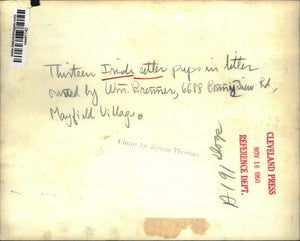 Thirteen Irish setter pups in litter
owned by Wm. Brenner, 6688 Bonnieview Rd,
Mayfield Village.
Photo by James Thomas
CLEVELAND PRESS
NOV 16 1950
REFERENCE DEPT.
A191 dogs